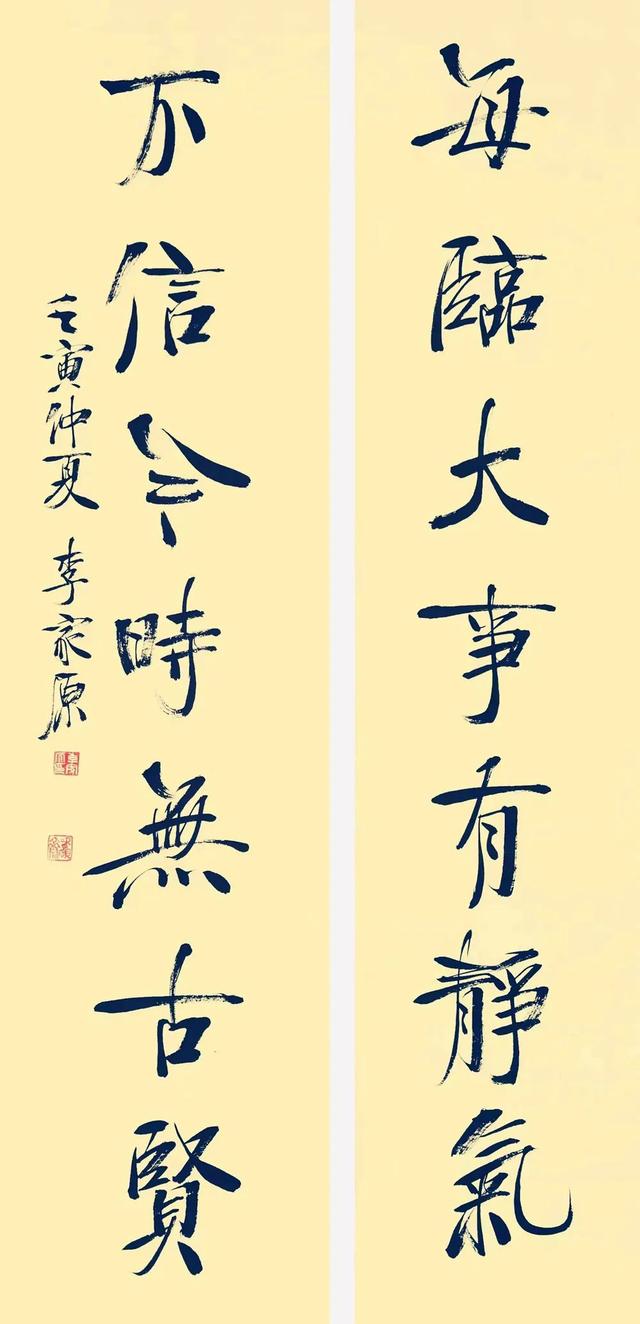 每臨大事有靜氣
不信今時無古賢
壬寅仲夏 李家原